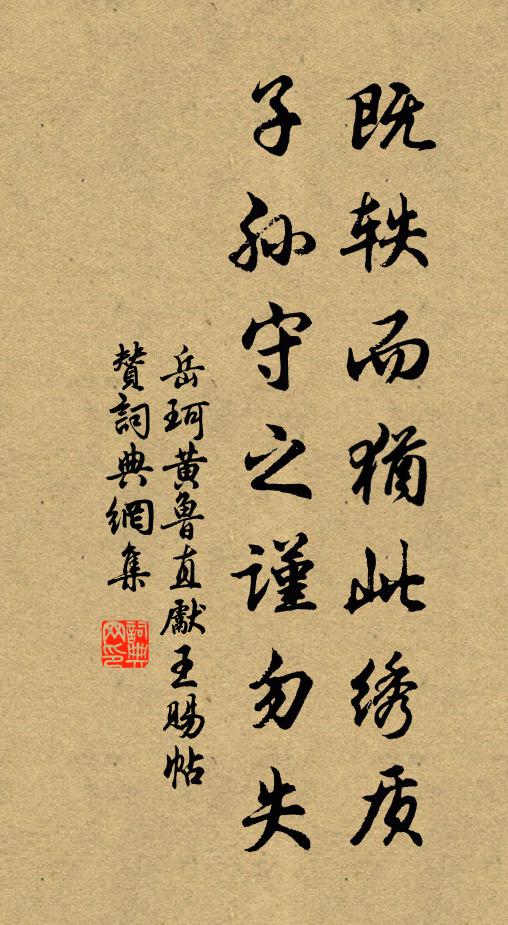 既轶而犹此绣质
子孙守之谨勿失
岳珂黄鲁直獻王賜帖
贊詞典網集
詞典网印